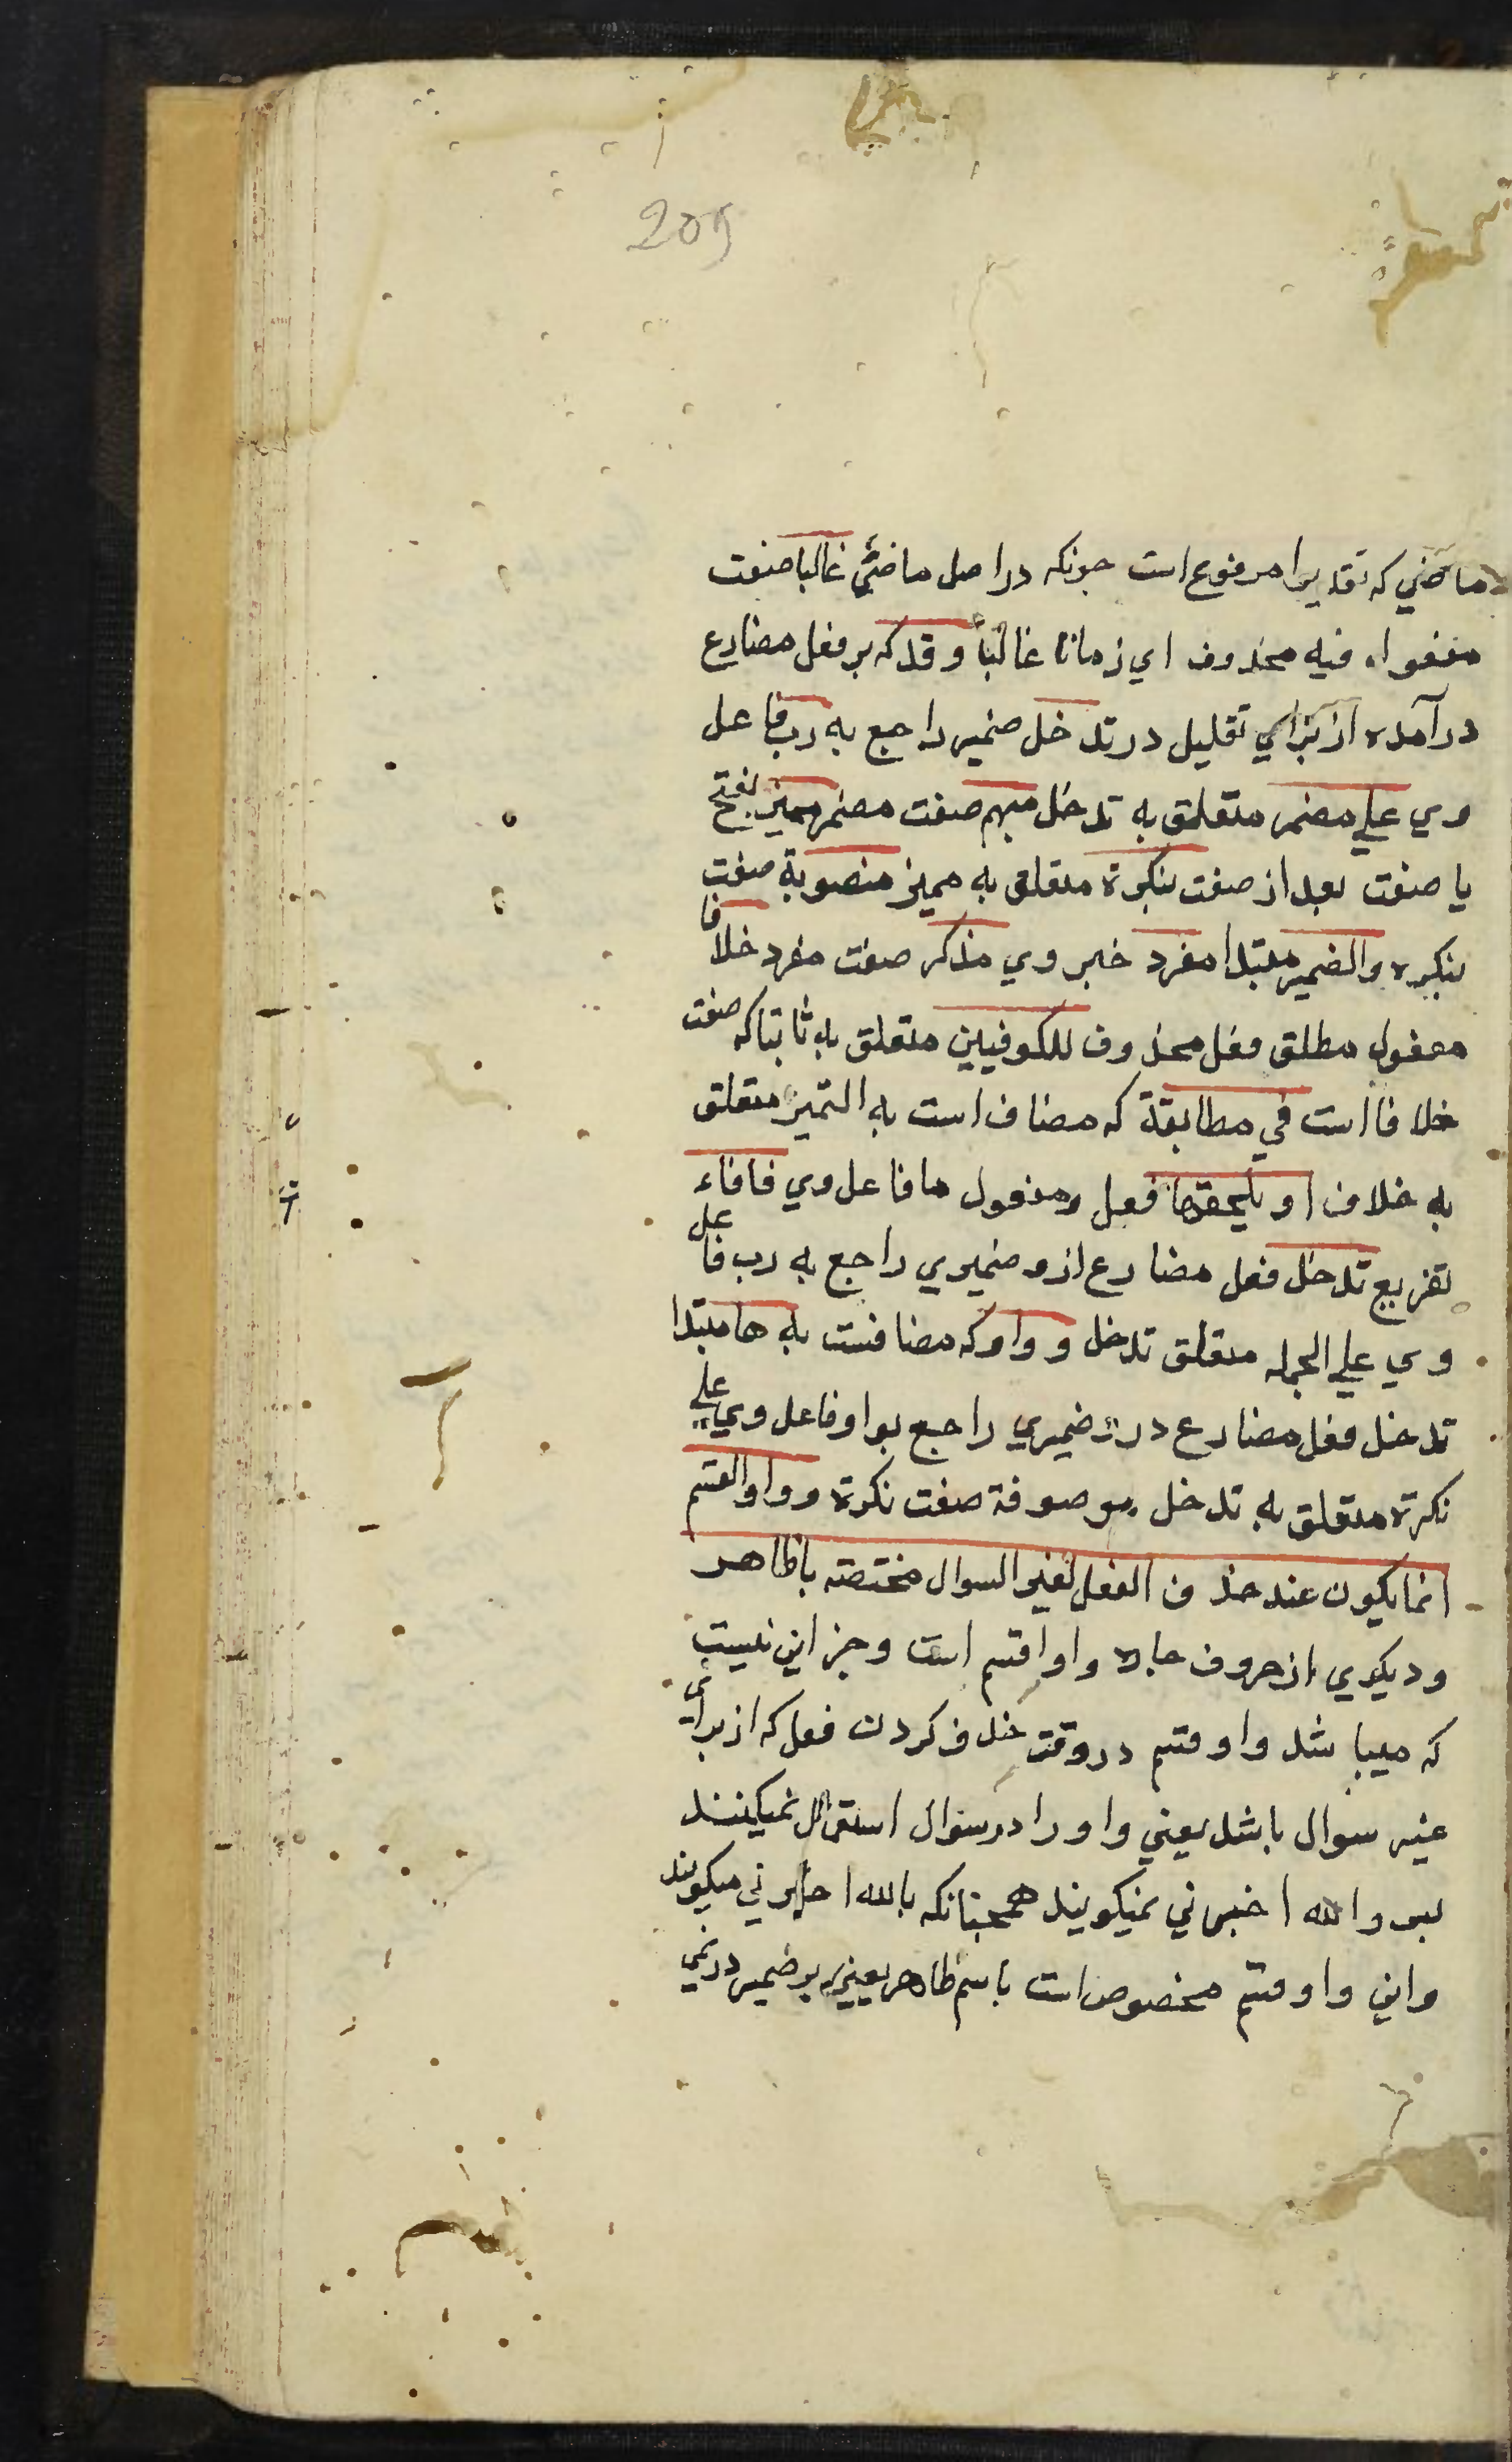 209
ماضي که تقدیرا مرفوع است چونکه در اصل ماضيٌ غالبا صفت
مفعول فیه محذوف اي زمانا غالبًا و قد که بر فعل مضارع
در آمده از برای تقلیل در تدخل ضمیر راجع به رب فاعل
وي علي مضمر متعلق به تدخل مبهم صفت مضمر ممیز بفتح
یا صفت بعد از صفت بنکرة متعلق به ممیز منصوبة صفت
بنکره والضمیر مبتدا مفرد خبر وي مذکر صفت مفرد خلافا
مفعول مطلق فعل محذوف للکوفیین متعلق به ثابتا که صفت
خلافا است في مطابقة که مضاف است به التمیز متعلق
به خلاف او یلحقها فعل ومفعول ما فاعل وي فا فاء
تفریع تدخل فعل مضارع ازو ضمیري راجع به رب فاعل
وي علي الجمله متعلق تدخل و واو که مضافست به ها مبتدا
تدخل فعل مضارع درو ضمیري راجع بواو فاعل وي علي
نکرة متعلق به تدخل موصوفة صفت نکرة و واو القسم
انما یکون عند حذف الفعل لغیر السوال مختصته باظاهر
ودیکري از حروف جاره واو قسم است وجز این نیست
که میباشد واو قسم در وقت حذف کردن فعل که از برای
غیر سوال باشد یعني واو را در سوال استعمال نمیکنند
بس والله اخبرني نمیکویند همچنانکه بالله اخبرني میکویند
واین واو قسم مخصوص است باسم ظاهر یعني بر ضمیر در نمي